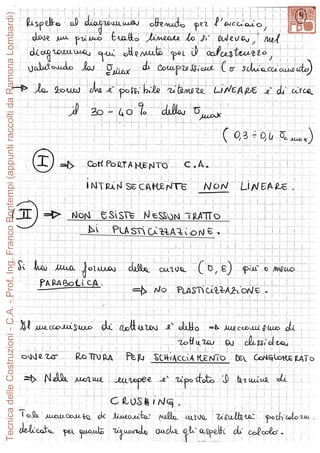 Rispetto al diagramma ottenuto per l'acciaio,
dove un primo tratto lineare lo si aveva, nel
diagramma qui ottenuto per il calcestruzzo,
valutando la σc max di compressione (σ schiacciamento)
=> la zona che è possibile ritenere LINEARE è di circa
il 30 - 40 % della σmax
(0,3 ÷ 0,4 σc max)
I => COMPORTAMENTO C.A.
INTRINSECAMENTE NON LINEARE.
II => NON ESISTE NESSUN TRATTO
DI PLASTICIZZAZIONE.
Si ha una forma della curva (σ, ε) più o meno
PARABOLICA.
=> NO PLASTICIZZAZIONE.
Il meccanismo di rottura è detto => meccanismo di
rottura a clessidra
ovvero ROTTURA PER SCHIACCIAMENTO DEL CONGLOMERATO
=> Nelle norme europee è riportato il termine di
CRUSHING.
Tale mancanza di linearità nella curva risulterà particolarm.
delicata per quanto riguarda anche gli aspetti di calcolo.
Tecnica delle Costruzioni - C.A. - Prof. Ing. Franco Bontempi (appunti raccolti da Ramona Lombardi)